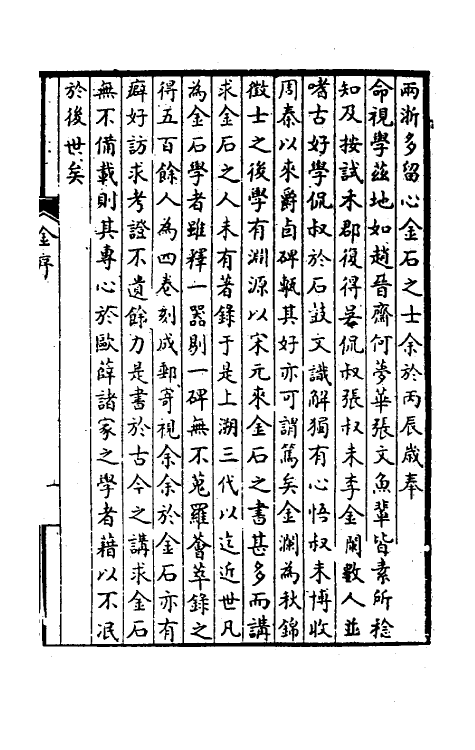 兩浙多留心金石之士余於丙辰歲奉
命視學茲地如趙晉齋何夢華張文魚輩皆素所稔
知及按試禾郡復得吳侃叔張叔未李金闌數人並
嗜古好學侃叔於石鼓文識解獨有心悟叔未博收
周秦以來爵卣碑甎其好亦可謂篤矣金瀾為秋錦
徵士之後學有淵源以宋元來金石之書甚多而講
求金石之人未有著錄于是上溯三代以迄近世凡
為金石學者雖釋一器剔一碑無不蒐羅薈萃錄之
得五百餘人為四卷刻成郵寄視余余於金石亦有
癖好訪求考證不遺餘力是書於古今之講求金石
無不備載則其專心於歐薛諸家之學者藉以不泯
於後世矣
金序
一